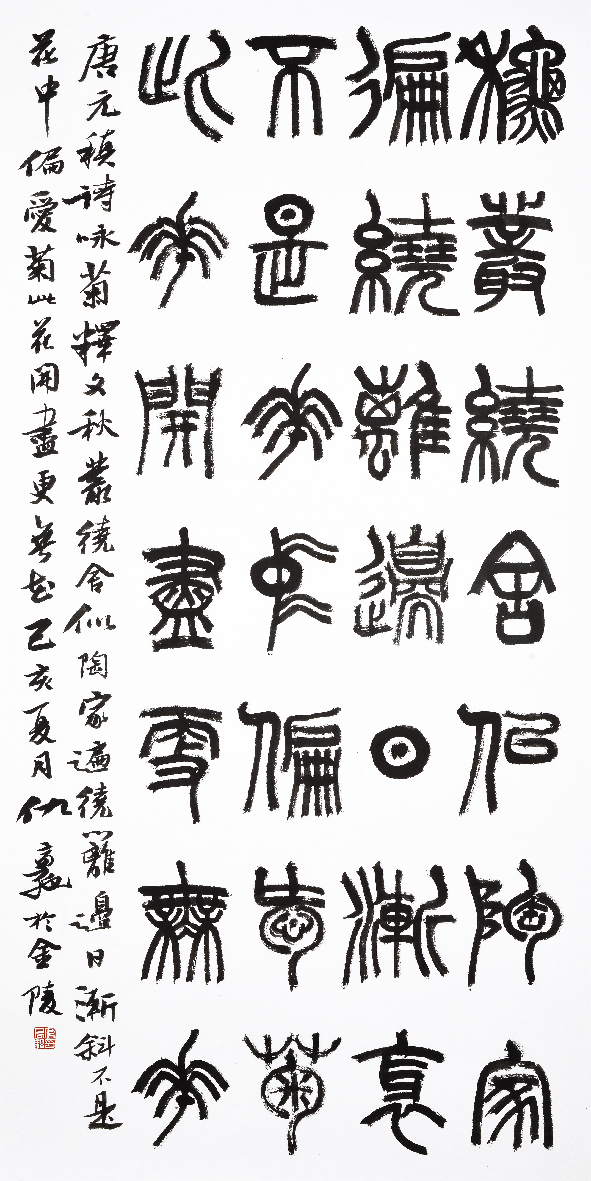 龝叢繞舍似陶家
徧繞離邊日漸衺
不是花中偏愛菊
此花開盡更無花
唐元稹詩咏菊釋文秋叢繞舍似陶家遍繞籬邊日漸斜不是
花中偏愛菊此花開盡更無花己亥夏月仇於金陵